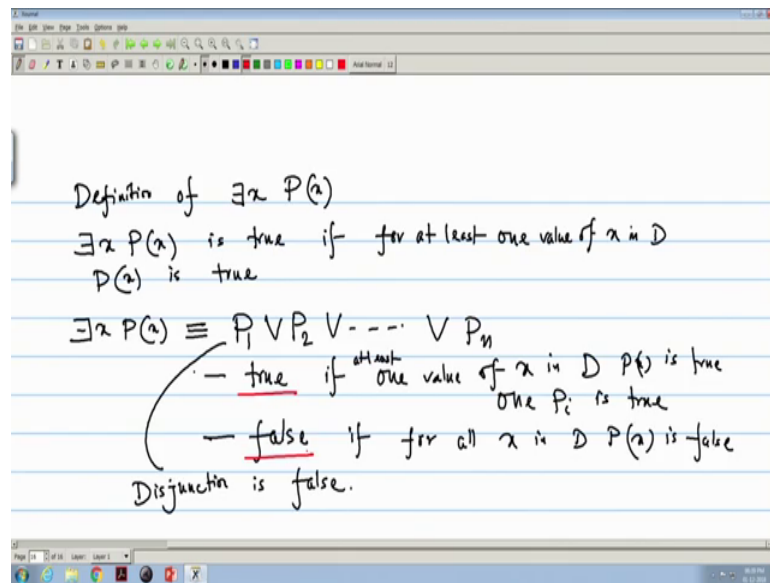 Journal
File Edit View Page Tools Options Help
Arial Normal 12
Definition of ∃x P(x)
∃x P(x) is true if for at least one value of x in D
P(x) is true
∃x P(x) ≡ P₁ ∨ P₂ ∨ ---- ∨ Pₙ
— true if at least one value of x in D P(x) is true
one Pᵢ is true
— false if for all x in D P(x) is false
Disjunction is false.
Page 16 of 16 Layer: Layer 1